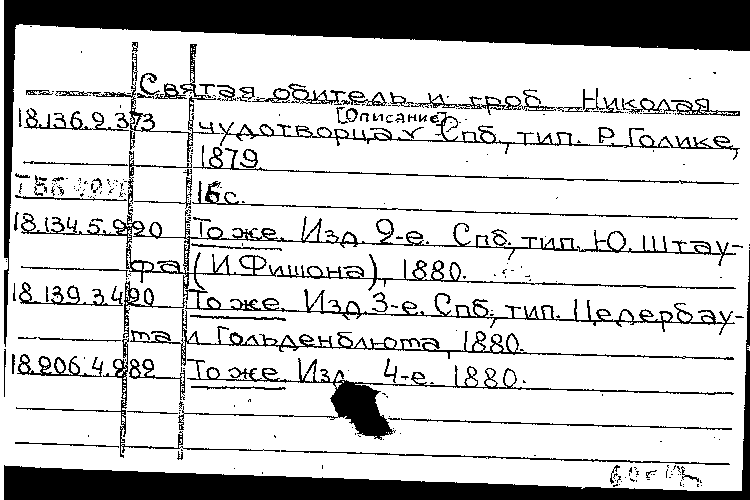 Святая обитель и гроб Николая
18.136.9.373 чудотворца. [Описание] Спб, тип. Р. Голике,
1879.
16с.
18.134.5.990 То же. Изд. 2-е. Спб, тип. Ю. Штау-
фа (И. Фишона), 1880.
18.139.3.490 То же. Изд. 3-е. Спб, тип. Цедербау-
ма и Гольденблюма, 1880.
18.206.4.282 То же. Изд. 4-е. 1880.